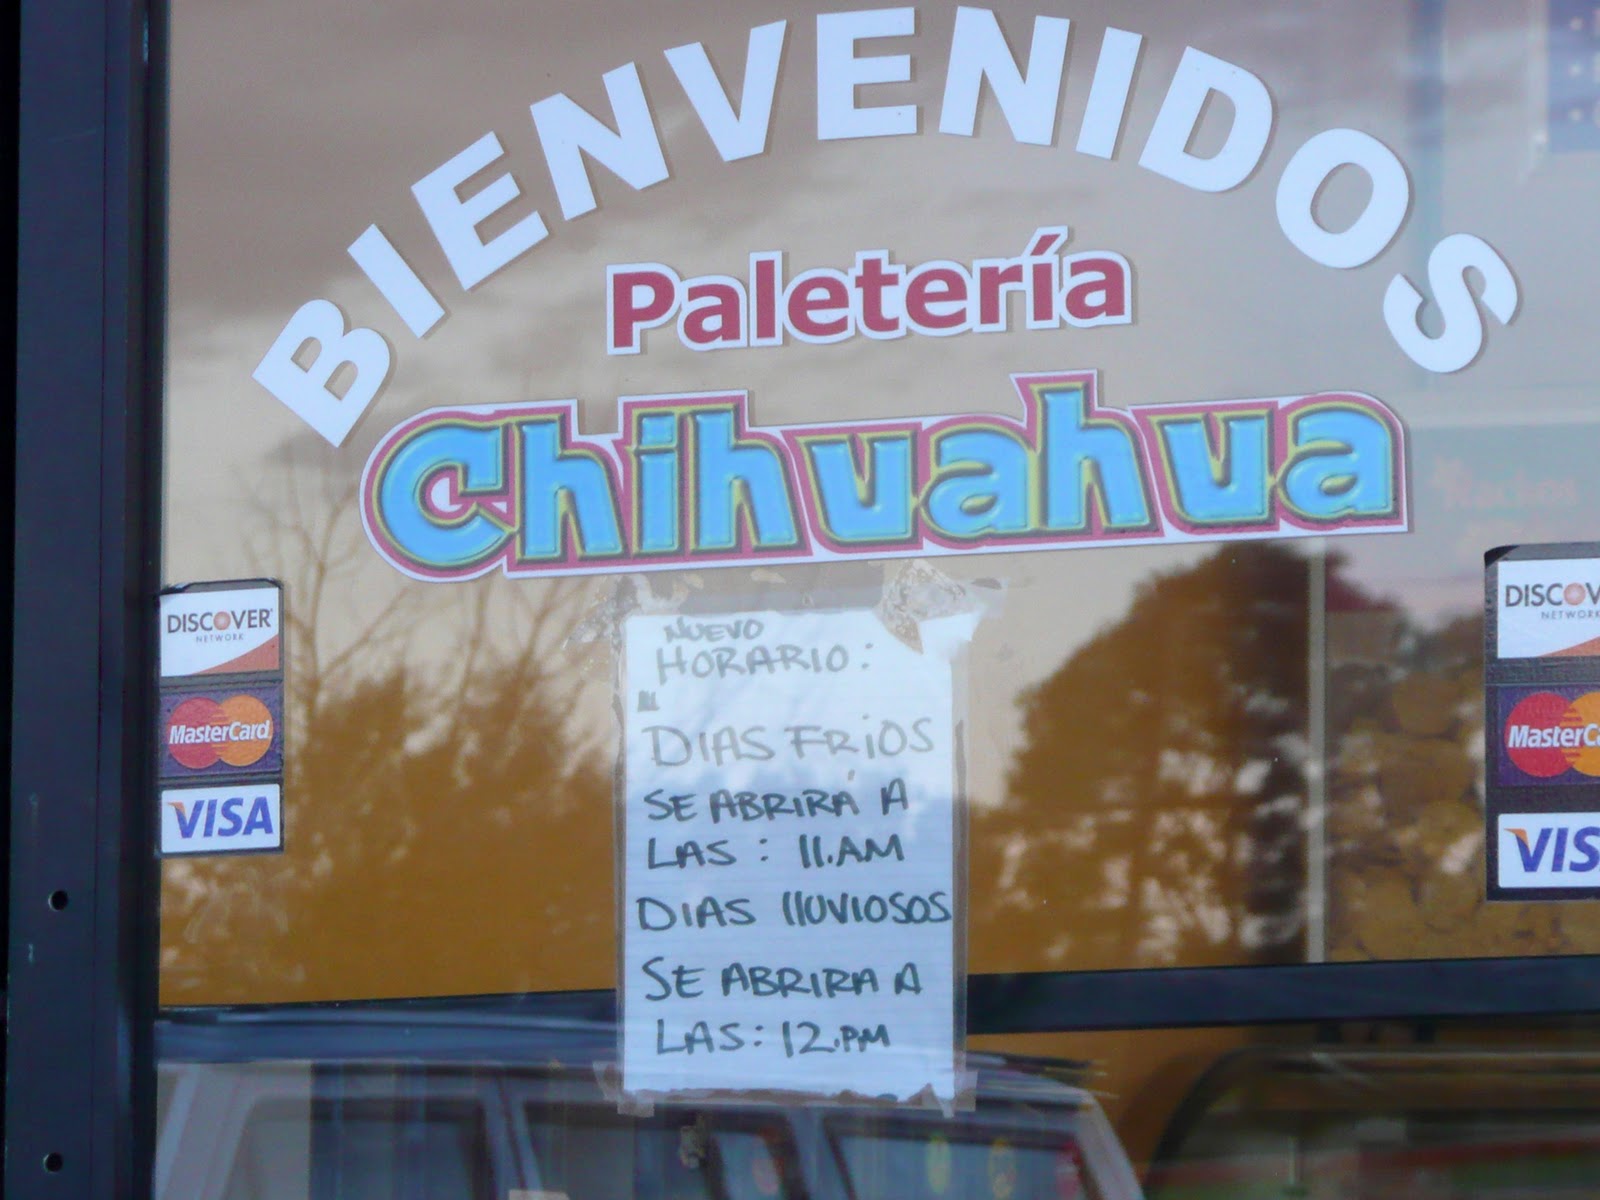 BIENVENIDOS
Paletería
Chihuahua
DISCOVER
NETWORK
MasterCard
VISA
NUEVO
HORARIO:
DIAS FRIOS
SE ABRIRÁ A
LAS: 11.AM
DIAS lluVIOSOS
SE ABRIRA A
LAS: 12.PM
DISCOV
NETWORK
MasterCa
VIS